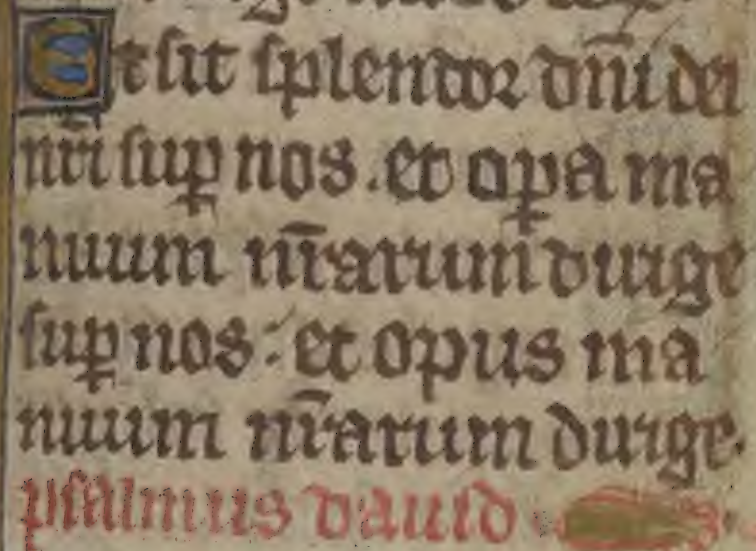 Et sit splendor dn̄i dei
nr̄i sup̲ nos. et op̲a ma
nuum nr̄arum dirige
sup̲ nos: et opus ma
nuum nr̄arum dirige.
psalmus dauid